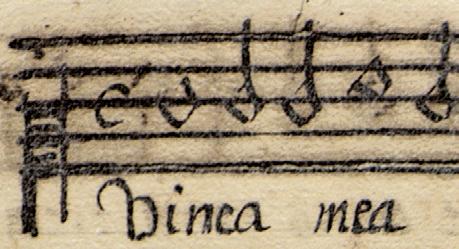 Vinea mea